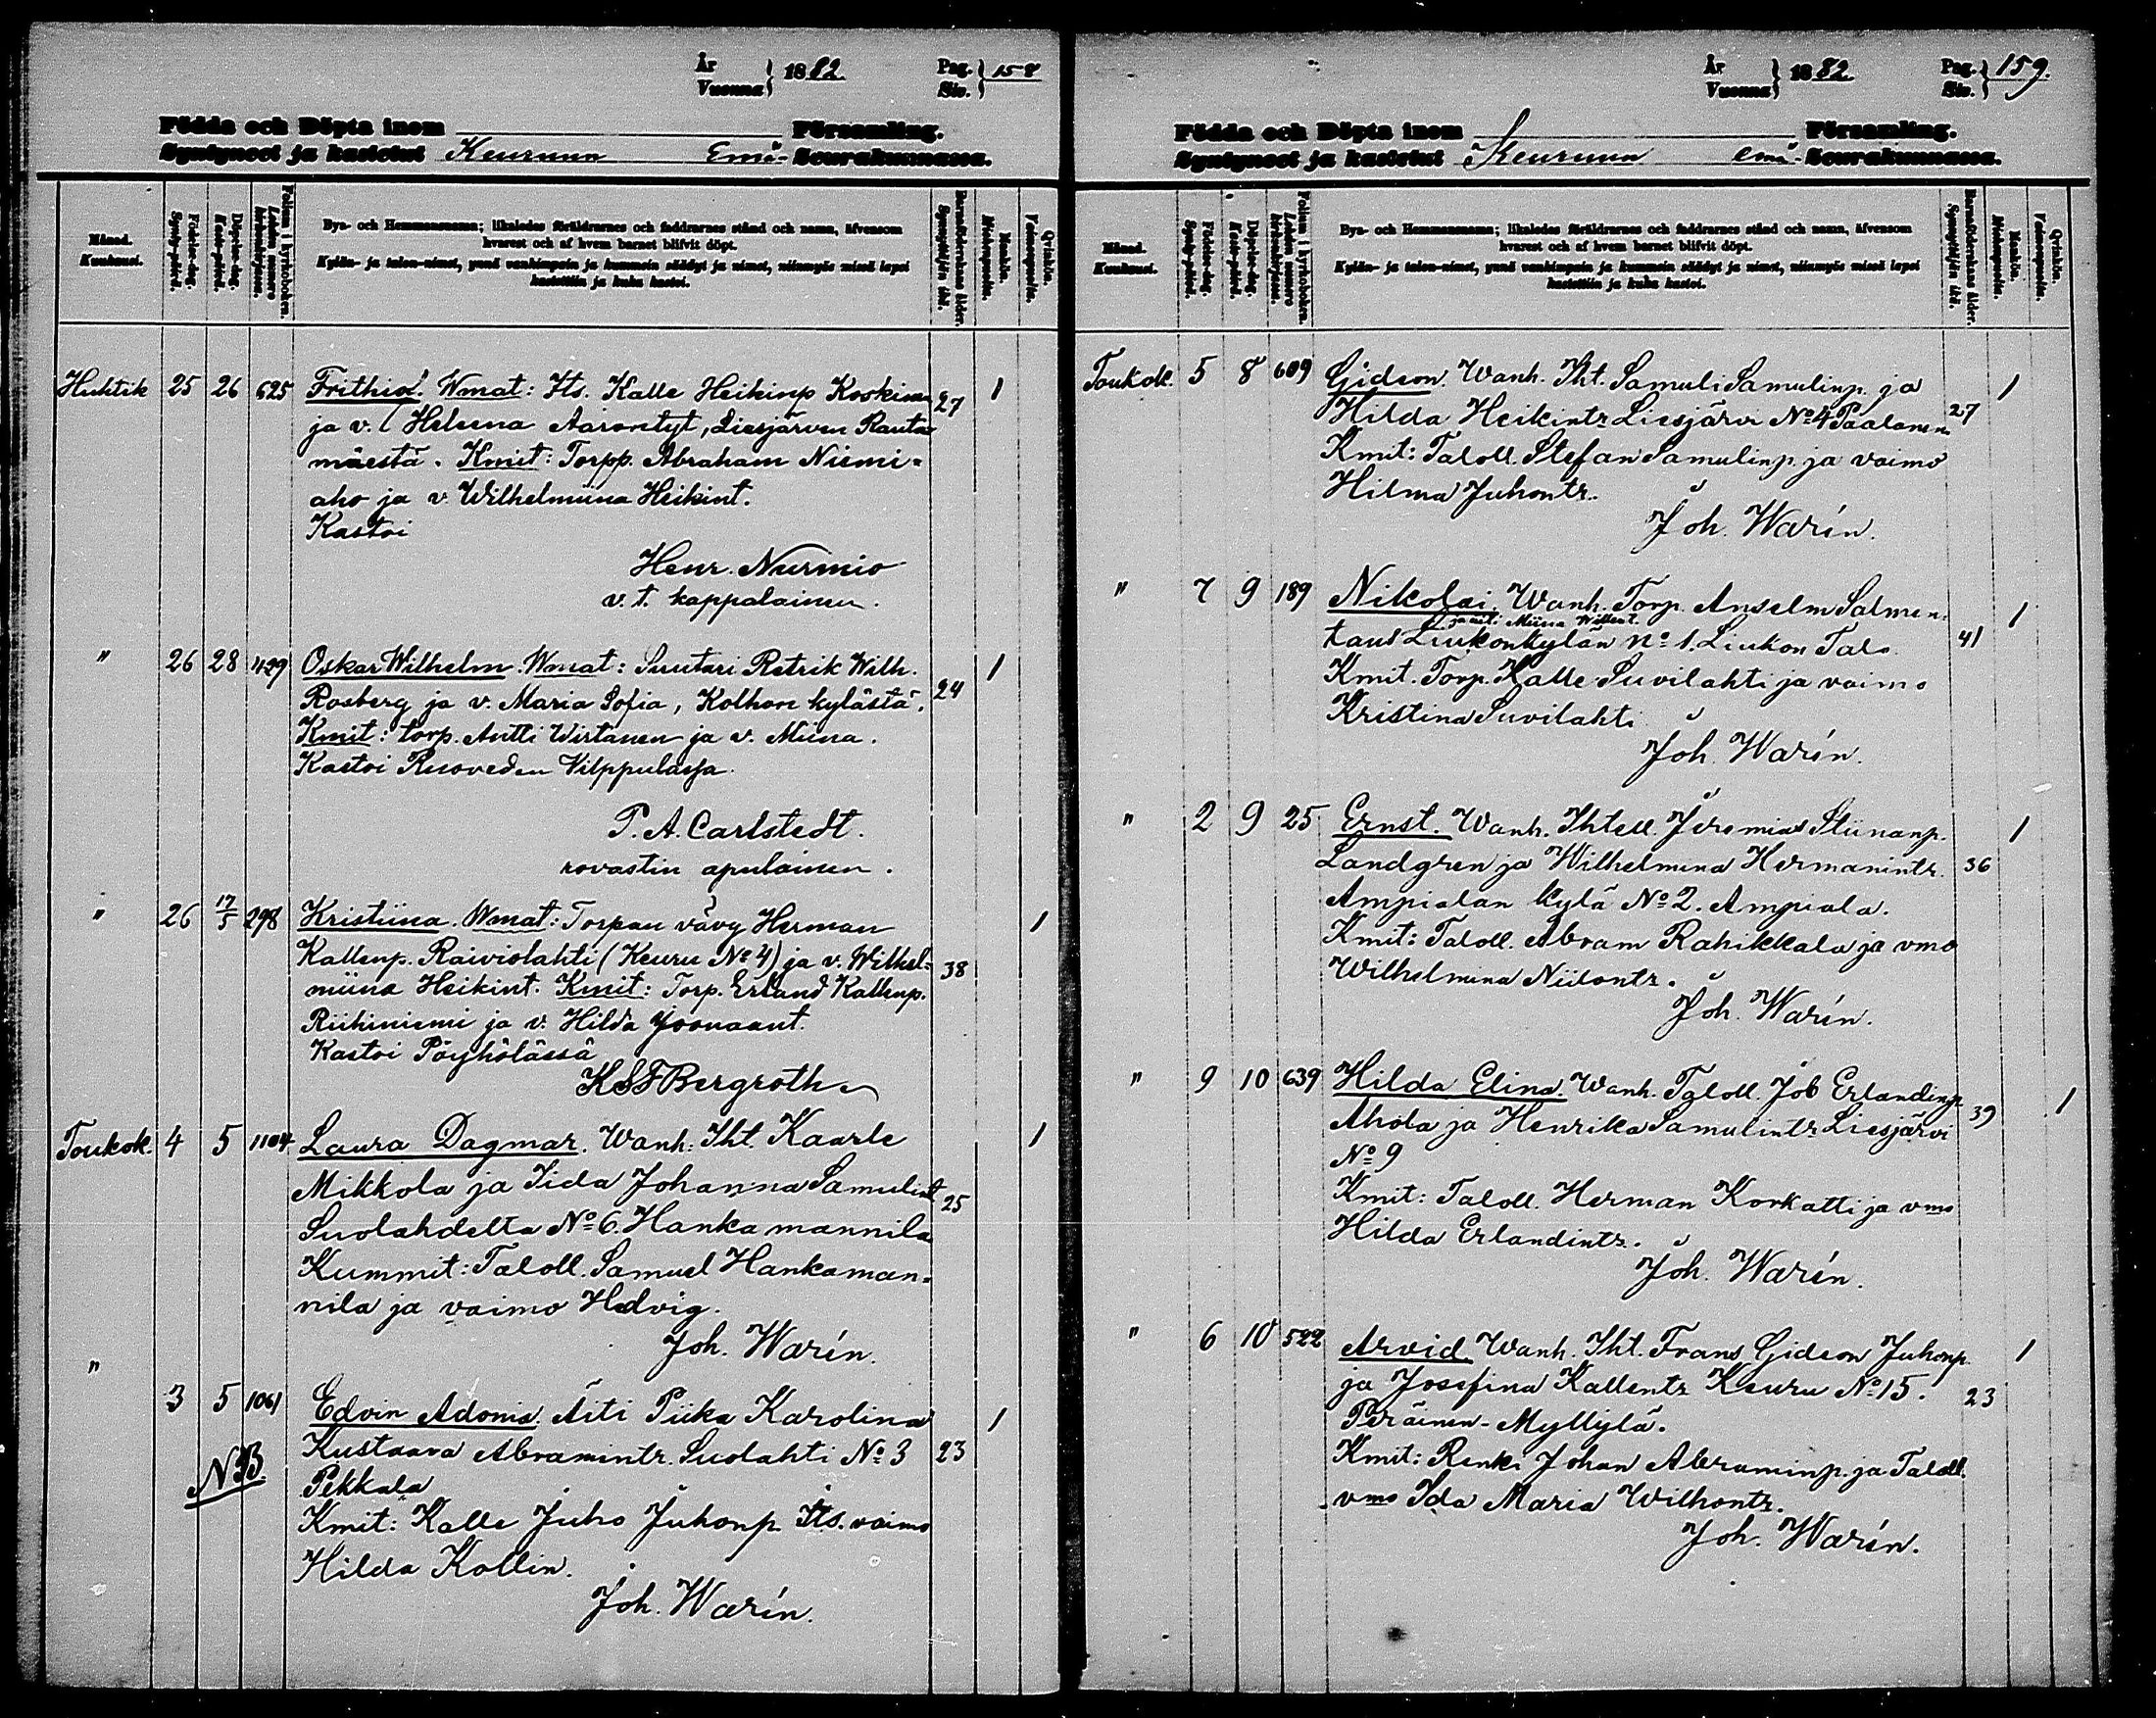 År
Vuonna } 1882.
Pag.
Siv. } 158
Födda och Döpta inom Församling.
Syntyneet ja kastetut Keuruun Emä- Seurakunnassa.
Månad.
Kuukausi.
Födelse-dag.
Synty-päivä.
Döpelse-dag.
Kaste-päivä.
Folium i kyrkoboken.
Lehden numero kirkonkirjassa.
Bya- och Hemmansnamn; likaledes föräldrarnes och faddrarnes stånd och namn, äfvensom
hvarest och af hvem barnet blifvit döpt.
Kylän- ja talon-nimet, ynnä vanhimpain ja kummein säädyt ja nimet, niinmyös missä lapsi
kastettiin ja kuka kastoi.
Barnaföderskans ålder.
Synnyttäjän ikä.
Mankön.
Miehenpuolta.
Qvinkön.
Vaimonpuolta.
Huhtik 25 26 625 Frithiof. Wmat: Its. Kalle Heikinp Koskinen 27 1
ja v. Helena Aarontyt, Liesjärven Rauta=
mäestä. Kmit: Torpp. Abraham Niemi=
aho ja v. Wilhelmiina Heikint.
Kastoi
Henr. Nurmio
v. t. kappalainen.
" 26 28 429 Oskar Wilhelm. Wmat: Suutari Retrik Wilh. 1
Rosberg ja v. Maria Sofia, Kolhon kylästä. 24
Kmit: torp. Antti Wirtanen ja v. Miina.
Kastoi Ruoveden Vilppulassa.
P. A. Carlstedt.
rovastin apulainen.
" 26 17/5 298 Kristiina. Wmat: Torpan vävy Herman 1
Kallenp. Raiviolahti (Keuru No 4) ja v. Wilhel= 38
miina Heikint. Kmit: Torp. Erland Kallenp.
Riihiniemi ja v. Hilda Joonaant.
Kastoi Pöyhölässä
K S F Bergroth
Toukok. 4 5 1104 Laura Dagmar. Wanh: Iht. Kaarle 1
Mikkola ja Iida Johanna Samulint 25
Suolahdelta No 6. Hankamannila
Kummit: Taloll. Samuel Hankaman=
nila ja vaimo Hedvig.
Joh. Warén.
" 3 5 1061 Edvin Adonis. Äiti Piika Karolina 1
Kustaava Abramintr. Suolahti No 3 23
NB. Pekkala
Kmit: Kalle Juho Juhonp. Its. vaimo
Hilda Kollin.
Joh. Warén.
År
Vuonna } 1882.
Pag.
Siv. } 159.
Födda och Döpta inom Församling.
Syntyneet ja kastetut Keuruun emä- Seurakunnassa.
Månad.
Kuukausi.
Födelse-dag.
Synty-päivä.
Döpelse-dag.
Kaste-päivä.
Folium i kyrkoboken.
Lehden numero kirkonkirjassa.
Bya- och Hemmansnamn; likaledes föräldrarnes och faddrarnes stånd och namn, äfvensom
hvarest och af hvem barnet blifvit döpt.
Kylän- ja talon-nimet, ynnä vanhimpain ja kummein säädyt ja nimet, niinmyös missä lapsi
kastettiin ja kuka kastoi.
Barnaföderskans ålder.
Synnyttäjän ikä.
Mankön.
Miehenpuolta.
Qvinkön.
Vaimonpuolta.
Toukok. 5 8 609 Gideon. Wanh. Iht. Samuli Samulinp. ja 1
Hilda Heikintr. Liesjärvi No 4 Paalanen 27
Kmit: Taloll. Stefan Samulinp. ja vaimo
Hilma Juhontr.
Joh. Warén.
" 7 9 189 Nikolai. Wanh. Torp. Anselm Salmen 1
ja äiti Miina Willent.
taus Liukonkylän No 1. Liukon Talo. 41
Kmit. Torp. Kalle Suvilahti ja vaimo
Kristina Suvilahti
Joh. Warén.
" 2 9 25 Ernst. Wanh. Ihtell. Jeremias Stiinanp. 1
Landgren ja Wilhelmina Hermanintr. 36
Ampialan kylä No 2. Ampiala.
Kmit: Taloll. Abram Rahikkala ja vmo
Wilhelmina Niilontr.
Joh. Warén.
" 9 10 639 Hilda Elina. Wanh. Taloll. Job Erlandinp. 1
Ahola ja Henrika Samulintr. Liesjärvi 39
No 9
Kmit: Taloll. Herman Korkatti ja vmo
Hilda Erlandintr.
Joh. Warén.
" 6 10 522 Arvid. Wanh. Iht. Frans Gideon Juhonp. 1
ja Josefina Kallentr Keuru No 15. 23
Peräinen-Myllylä.
Kmit: Renki Johan Abraminp. ja Taloll.
vmo Ida Maria Wilhontr.
Joh. Warén.